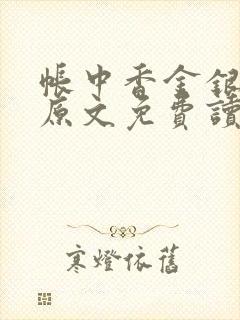 帳中香金銀
原文免費讀
寒燈依舊